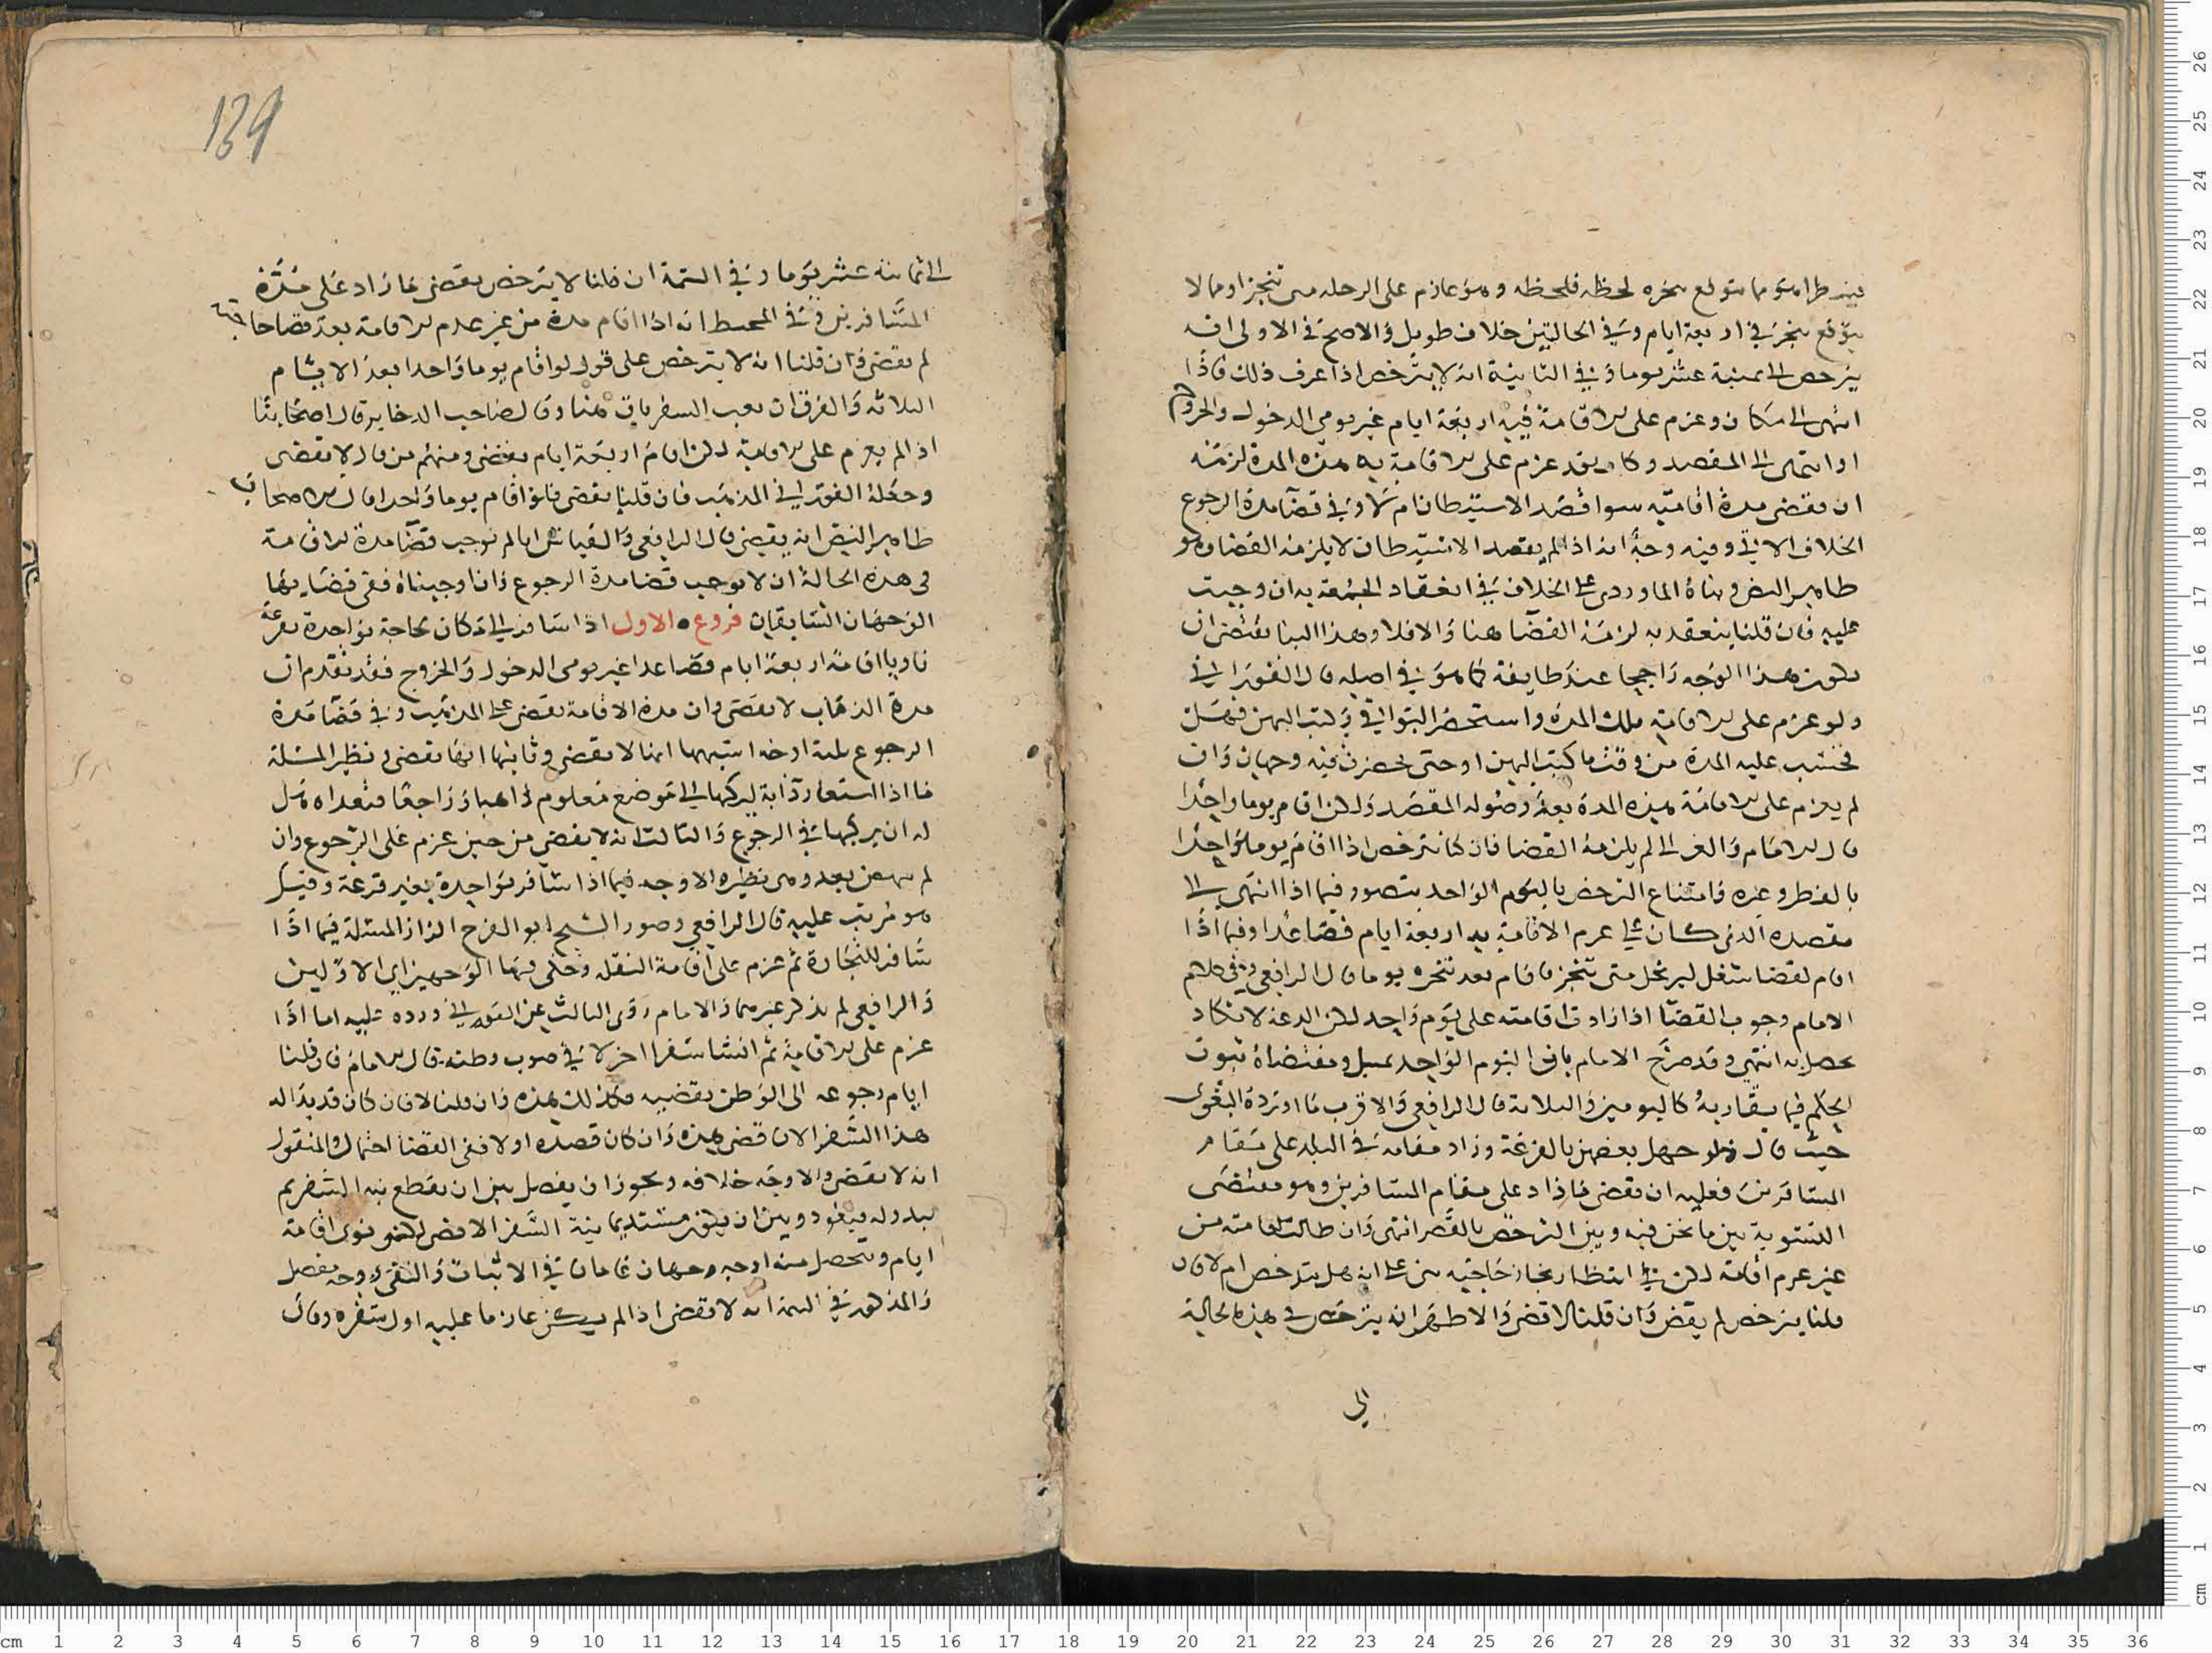 يتوقع تنجزه لحظة فلحظة وهو عازم على الرحلة متى تنجز او مما لا
يتوقع تنجزه في اربعة ايام وفي الحالتين خلاف طويل والاصح في الاولى انه
يترخص الى ثمنية عشر يوما وفي الثانية انه لا يترخص اذا عرف ذلك فاذا
انتهى الى مكان وعزم على الاقامة فيه اربعة ايام غير يومي الدخول والخروج
او انتهى الى المقصد وكان قد عزم على الاقامة به هذه المدة لزمه
ان يقضي مدة اقامته سوا قصد الاستيطان ام لا وفي قضا مدة الرجوع
الخلاف الاتي وفيه وجه انه اذا لم يقصد الاستيطان لا يلزمه القضا وهو
ظاهر النص وبناه الماوردي على الخلاف في انعقاد الجمعة به ان وجبت
عليه فان قلنا ينعقد به لزمه القضا هنا والا فلا وهذا البنا يقتضي ان
يكون هذا الوجه راجحا عند طايفة كما هو في اصله قال الفوراني
ولو عزم على الاقامة تلك المدة واستحضر البواقي وكتب اليهن فهل
تحتسب عليه المدة من وقت ما كتب اليهن او حتى يحضرن فيه وجهان وان
لم يعزم على الاقامة هذه المدة بعد وصوله المقصد ولكن اقام يوما واحدا
قال الامام والغزالي لم يلزمه القضا فان كان يترخص اذا اقام يوما واحدا
بالفطر وغيره وامتناع الترخص باليوم الواحد يتصور فيما اذا انتهى الى
مقصده الذي كان على عزم الاقامة به اربعة ايام فصاعدا وفيما اذا
اقام لقضا شغل ليرتحل متى تنجز فاقام بعد تنجزه يوما قال الرافعي وفي كلام
الامام وجوب القضا اذا زاد في اقامته على يوم واحد لكن الدعة لا تكاد
تحصل به انتهى وقد صرح الامام بان اليوم الواحد تمثيل ومقتضاه ثبوت
الحكم فيما يقاربه كاليومين والثلاثة قال الرافعي والاقرب ما اورده البغوي
حيث قال ولو حمل بعضهن بالقرعة وزاد مقامه في البلد على مقام
المسافرين فعليه ان يقضي ما زاد على مقام المسافرين وهو مقتضى
التسوية بين ما نحن فيه وبين الترخص بالقصر انتهى وان طالت اقامته من
غير عزم اقامة لكن في انتظار نجاز حاجته بني على انه هل يترخص ام لا فان
قلنا يترخص لم يقض وان قلنا لا قضى والاظهر انه يترخص في هذه الحالة
الى
139
الى ثمانية عشر يوما وفي التتمة ان قلنا لا يترخص يقضي ما زاد على مدة
المسافرين وفي المحيط انه اذا اقام مدة من غير عزم الاقامة بعد قضا حاجته
لم يقض وان قلنا انه لا يترخص على قول لو اقام يوما واحدا بعد الايام
الثلاثة والفرق ان تعب السفر باق هنا وقال صاحب الدخاير قال اصحابنا
اذا لم يعزم على الاقامة لكن اقام اربعة ايام يقضي ومنهم من قال لا يقضي
وجعله الفوراني المذهب فان قلنا يقضي فلو اقام يوما واحدا قال الاصحاب
ظاهر النص انه يقضي قال الرافعي والقياس انا لم نوجب قضا مدة الاقامة
في هذه الحالة ان لا نوجب قضا مدة الرجوع وان اوجبناه ففي قضايها
الوجهان السابقان فروع الاول اذا سافر الى مكان لحاجة بواحدة بقرعة
ناويا اقامة اربعة ايام فصاعدا غير يومي الدخول والخروج فقد تقدم ان
مدة الذهاب لا تقضى وان مدة الاقامة تقضى على المذهب وفي قضا مدة
الرجوع ثلثة اوجه اشبهها انها لا تقضى وثانيها انها تقضى ونظير المسئلة
ما اذا استعار دابة ليركبها الى موضع معلوم ذاهبا وراجعا فتعداه هل
له ان يركبها في الرجوع والثالث انه لا يقضي من حين عزم على الرجوع وان
لم ينهض بعد ومن نظيره الاوجه فيما اذا سافر بواحدة بغير قرعة وقيل
هو مرتب عليه قال الرافعي وصور الشيخ ابو الفرح الزاز المسئلة فيما اذا
سافر للتجارة ثم عزم على اقامة النقلة وحكى فيها الوجهين الاولين
والرافعي لم يذكر غيرهما والامام روى الثالث عن الفوراني ورده عليه اما اذا
عزم على الاقامة ثم انشا سفرا اخر لا في صوب وطنه قال الامام فان قلنا
ايام رجوعه الى الوطن يقضيه فكذلك هذه وان قلنا لا فان كان قد بدا له
هذا السفر الان قضى هذه وان كان قصده اولا ففي القضا احتمال والمنقول
انه لا يقضى والاوجه خلافه ويجوز ان يفصل بين ان يقطع نية السفر ثم
يبدو له فيعود وبين ان يكون مستديما نية السفر الا قضى كنحو نوى اقامة
ايام ويتحصل منه اوجه وجهان عامان في الاثبات والنفي ووجه مفصل
والمذهب في التتمة انه لا يقضي اذا لم يكن عازما عليه اول سفره وقال